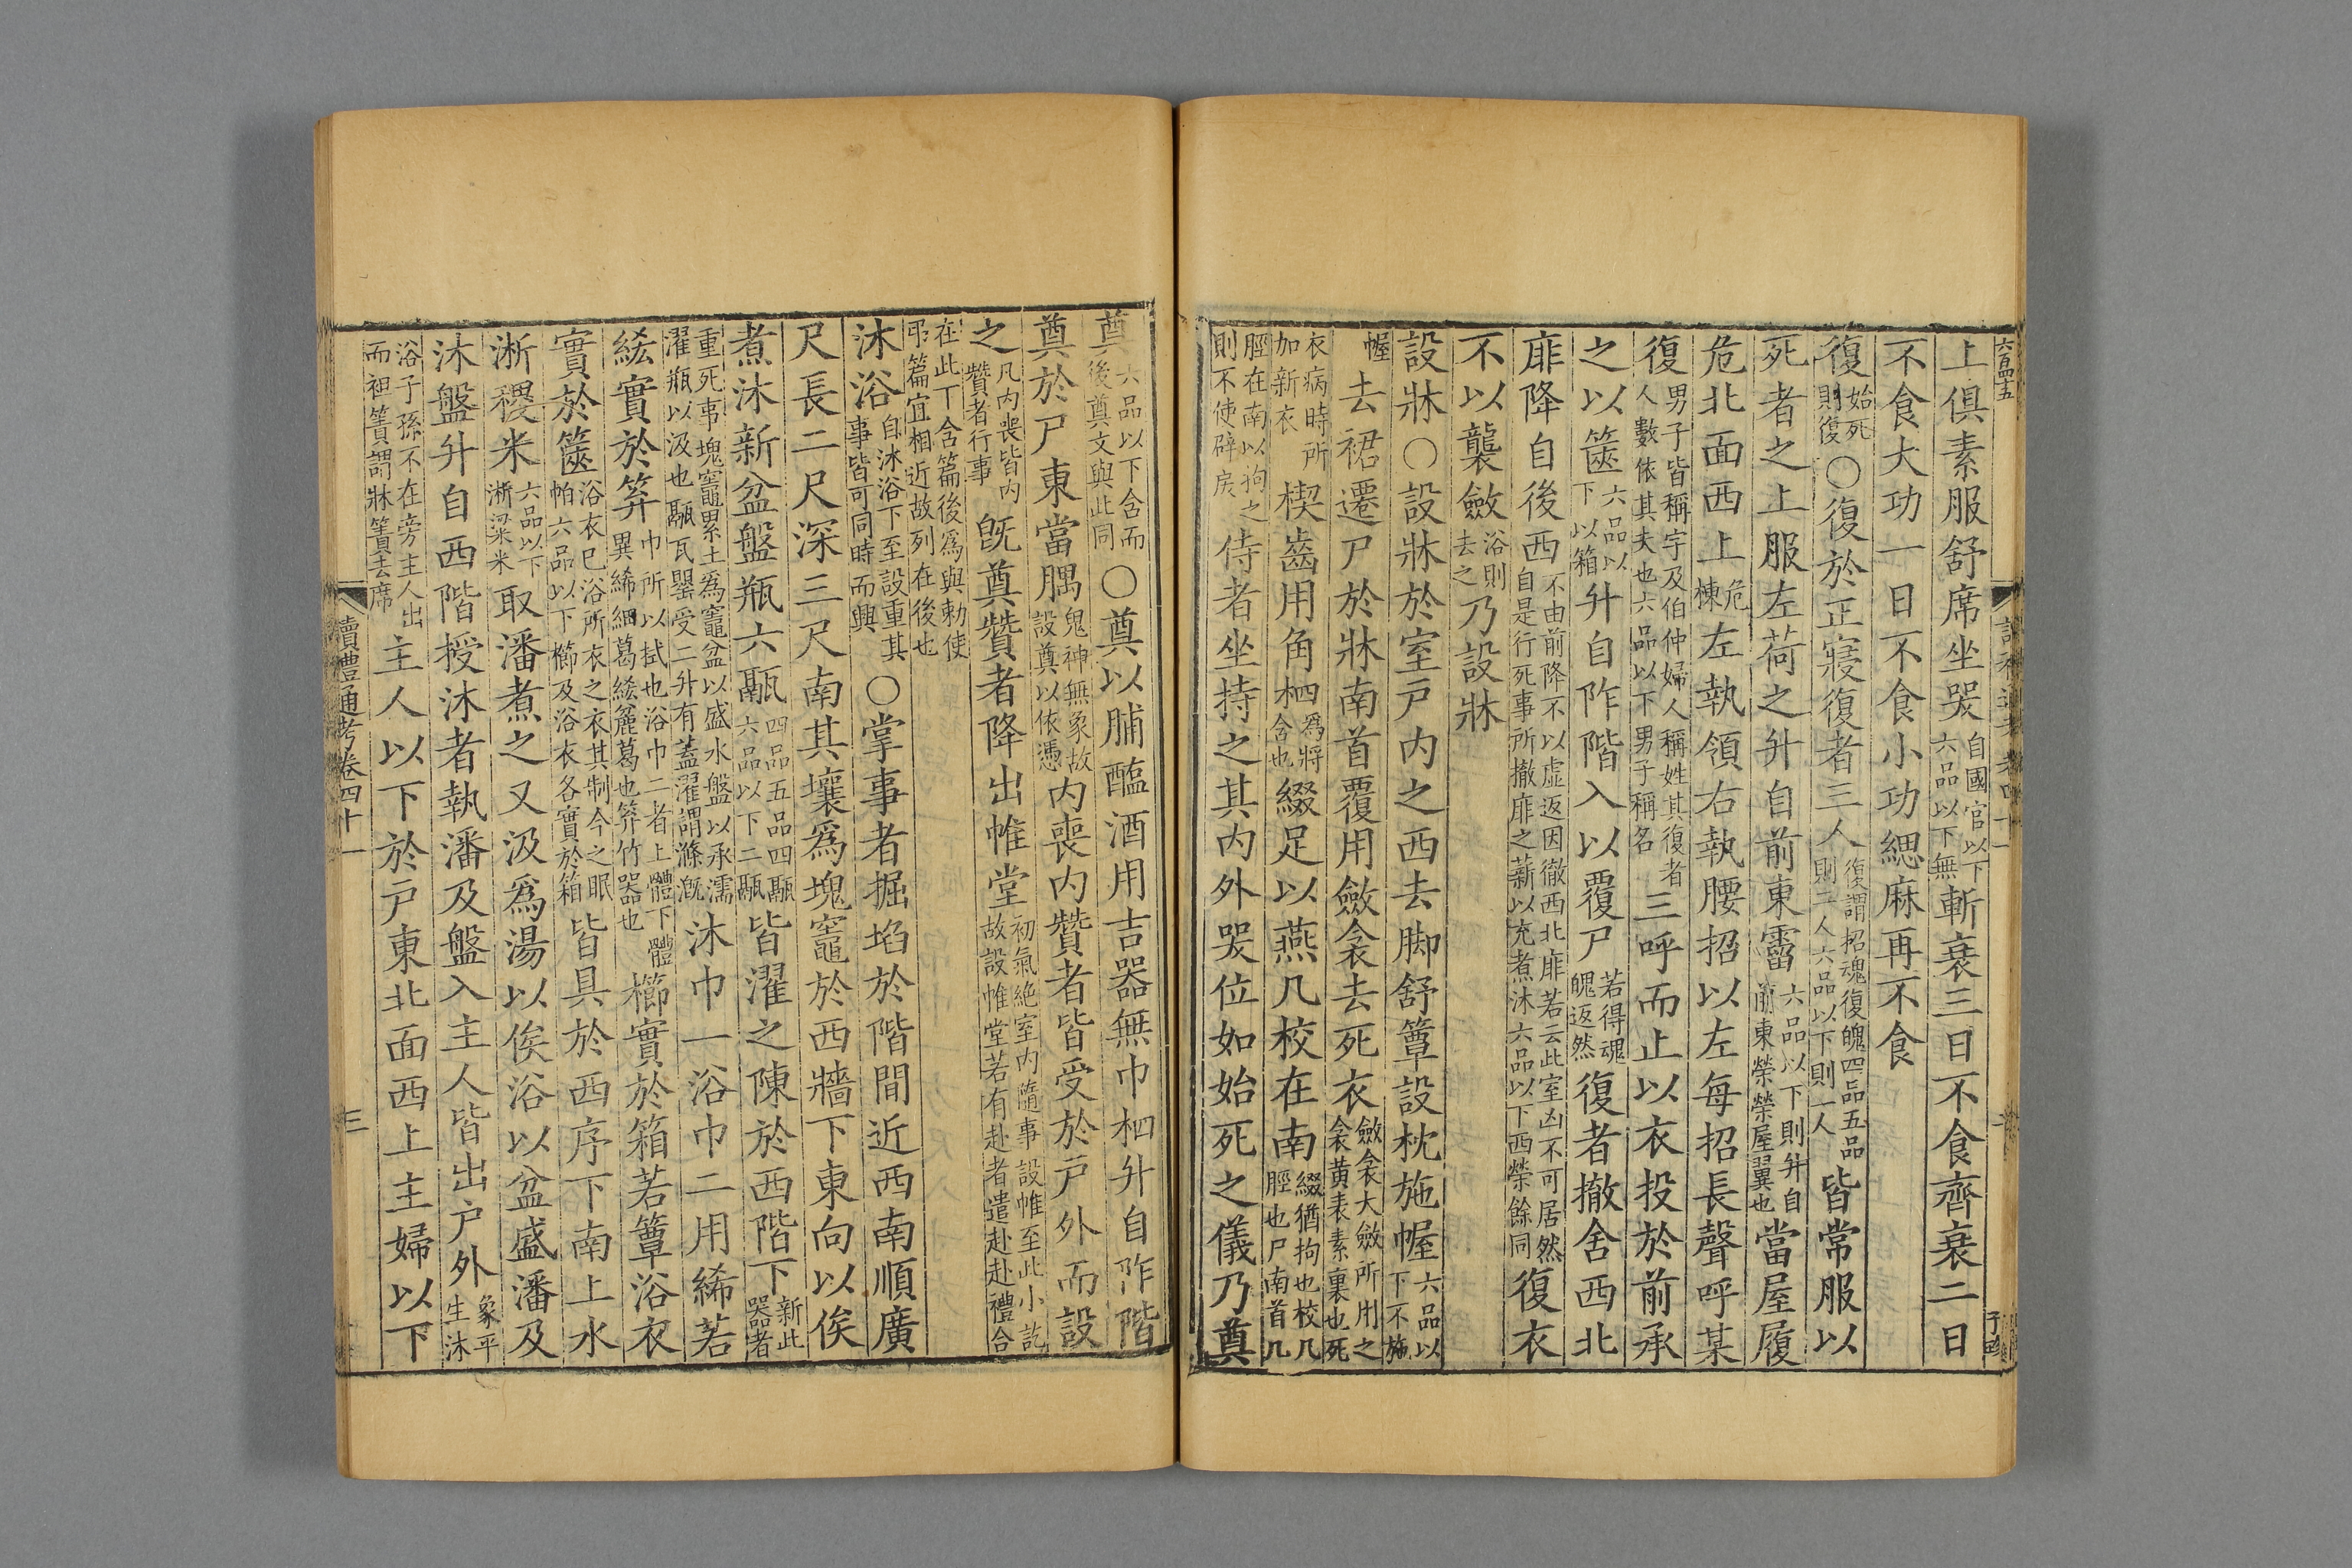 上俱素服舒席坐哭自國官以下六品以下無斬衰三日不食齊衰二日
不食大功一日不食小功緦麻再不食
復始死則復〇復於正寢復者三人復謂招魂復魄四品五品則二人六品以下則一人皆常服以
死者之上服左荷之升自前東霤六品以下則升自前東榮榮屋翼也當屋履
危北面西上危棟左執領右執腰招以左每招長聲呼某
復男子皆稱字及伯仲婦人稱姓其復者人數依其夫也六品以下男子稱名三呼而止以衣投於前承
之以篋六品以下以箱升自阼階入以覆尸若得魂魄返然復者撤舍西北
厞降自後西不由前降不以虛返因徹西北厞若云此室凶不可居然自是行死事所撤厞之薪以充煮沐六品以下西榮餘同復衣
不以襲斂浴則去之乃設牀
設牀〇設牀於室戶內之西去脚舒簟設枕施幄六品以下不施
幄去裙遷尸於牀南首覆用斂衾去死衣斂衾大斂所用之衾黃表素裏也死
衣病時所加新衣楔齒用角柶爲將含也綴足以燕几校在南綴猶拘也校几脛也尸南首几
脛在南以拘之則不使辟戾侍者坐持之其內外哭位如始死之儀乃奠
奠六品以下含而後奠文與此同〇奠以脯醢酒用吉器無巾柶升自阼階
奠於尸東當腢鬼神無象故設奠以依憑內喪內贊者皆受於戶外而設
之凡內喪皆內贊者行事旣奠贊者降出帷堂初氣絕室內隨事設帷至此小訖故設帷堂若有赴者遣赴赴禮合
在此丁含篇後爲與勅使弔篇宜相近故列在後也
沐浴自沐浴下至設重其事皆可同時而興〇掌事者掘坎於階間近西南順廣
尺長二尺深三尺南其壤爲塊竈於西牆下東向以俟
煮沐新盆盤瓶六鬲四品五品四鬲六品以下二鬲皆濯之陳於西階下新此器者
重死事塊竈累土爲竈盆以盛水盤以承濡濯瓶以汲也鬲瓦甖受二升有蓋濯謂滌漑沐巾一浴巾二用絺若
綌實於笲巾所以拭也浴巾二者上體下體異絺細葛綌麄葛也笲竹器也櫛實於箱若簟浴衣
實於篋浴衣已浴所衣之衣其制今之眠帕六品以下櫛及浴衣各實於箱皆具於西序下南上水
淅稷米六品以下淅粱米取潘煮之又汲爲湯以俟浴以盆盛潘及
沐盤升自西階授沐者執潘及盤入主人皆出戶外象平生沐
浴子孫不在旁主人出而袒簀謂牀簀去席主人以下於戶東北面西上主婦以下
讀禮通考卷四十一
三